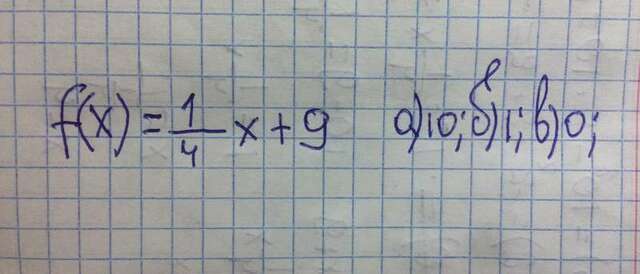 f(x) = 1/4 x + 9 а) 10; б) 1; в) 0;